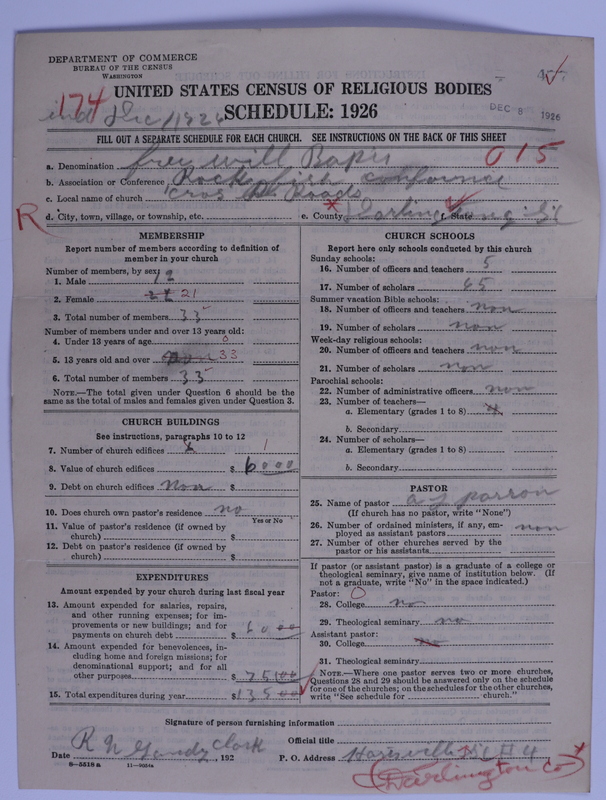 DEPARTMENT OF COMMERCE
BUREAU OF THE CENSUS
WASHINGTON
UNITED STATES CENSUS OF RELIGIOUS BODIES
174
SCHEDULE: 1926
DEC 8 1926
FILL OUT A SEPARATE SCHEDULE FOR EACH CHURCH. SEE INSTRUCTIONS ON THE BACK OF THIS SHEET
a. Denomination free will Bapis 015
b. Association or Conference Rock fish confornce
c. Local name of church cros Roads
R d. City, town, village, or township, etc. e. County Darling f. State
MEMBERSHIP
Report number of members according to definition of member in your church
Number of members, by sex:
1. Male 12
2. Female 21
3. Total number of members 33
Number of members under and over 13 years old:
4. Under 13 years of age 0
5. 13 years old and over non 33
6. Total number of members 33
NOTE.—The total given under Question 6 should be the same as the total of males and females given under Question 3.
CHURCH BUILDINGS
See instructions, paragraphs 10 to 12
7. Number of church edifices 1
8. Value of church edifices $ 6000
9. Debt on church edifices non $
10. Does church own pastor's residence? no
Yes or No
11. Value of pastor's residence (if owned by church) $
12. Debt on pastor's residence (if owned by church) $
EXPENDITURES
Amount expended by your church during last fiscal year
13. Amount expended for salaries, repairs, and other running expenses; for improvements or new buildings; and for payments on church debt $ 6000
14. Amount expended for benevolences, including home and foreign missions; for denominational support; and for all other purposes $ 7500
15. Total expenditures during year $ 13500
CHURCH SCHOOLS
Report here only schools conducted by this church
Sunday schools:
16. Number of officers and teachers 5
17. Number of scholars 65
Summer vacation Bible schools:
18. Number of officers and teachers non
19. Number of scholars non
Week-day religious schools:
20. Number of officers and teachers non
21. Number of scholars non
Parochial schools:
22. Number of administrative officers non
23. Number of teachers—
a. Elementary (grades 1 to 8)
b. Secondary
24. Number of scholars—
a. Elementary (grades 1 to 8)
b. Secondary
PASTOR
25. Name of pastor
(If church has no pastor, write "None")
26. Number of ordained ministers, if any, employed as assistant pastors non
27. Number of other churches served by the pastor or his assistants
If pastor (or assistant pastor) is a graduate of a college or theological seminary, give name of institution below. (If not a graduate, write "No" in the space indicated.)
Pastor: 0
28. College no
29. Theological seminary no
Assistant pastor:
30. College no
31. Theological seminary
NOTE.—Where one pastor serves two or more churches, Questions 28 and 29 should be answered only on the schedule for one of the churches; on the schedules for the other churches, write "See schedule for church."
Signature of person furnishing information
R N Gandy Clark Official title
Date , 192 P. O. Address #4
8—5518 a 11—9054a
Darlington Co